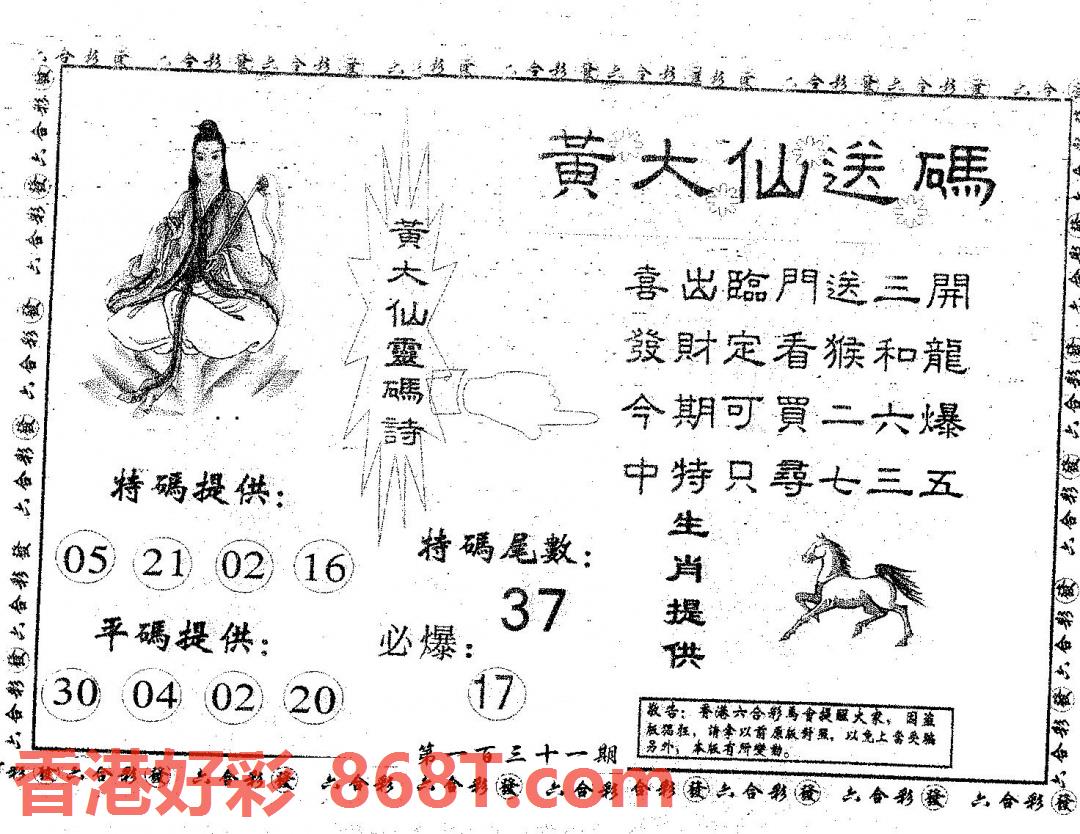 六合彩發六合彩發六合彩發六合彩發六合彩發六合彩發六合彩發
黃大仙送碼
黃大仙靈碼詩
喜出臨門送三開
發財定看猴和龍
今期可買二六爆
中特只尋七三五
特碼提供：
05 21 02 16
平碼提供：
30 04 02 20
特碼尾數：
37
必爆：
17
生肖提供
敬告：香港六合彩馬會提醒大家，因盜
版猖狂，請拿以前原版對照，以免上當受騙
另外，本版有所變動。
第一百三十一期
香港好彩 868T.com